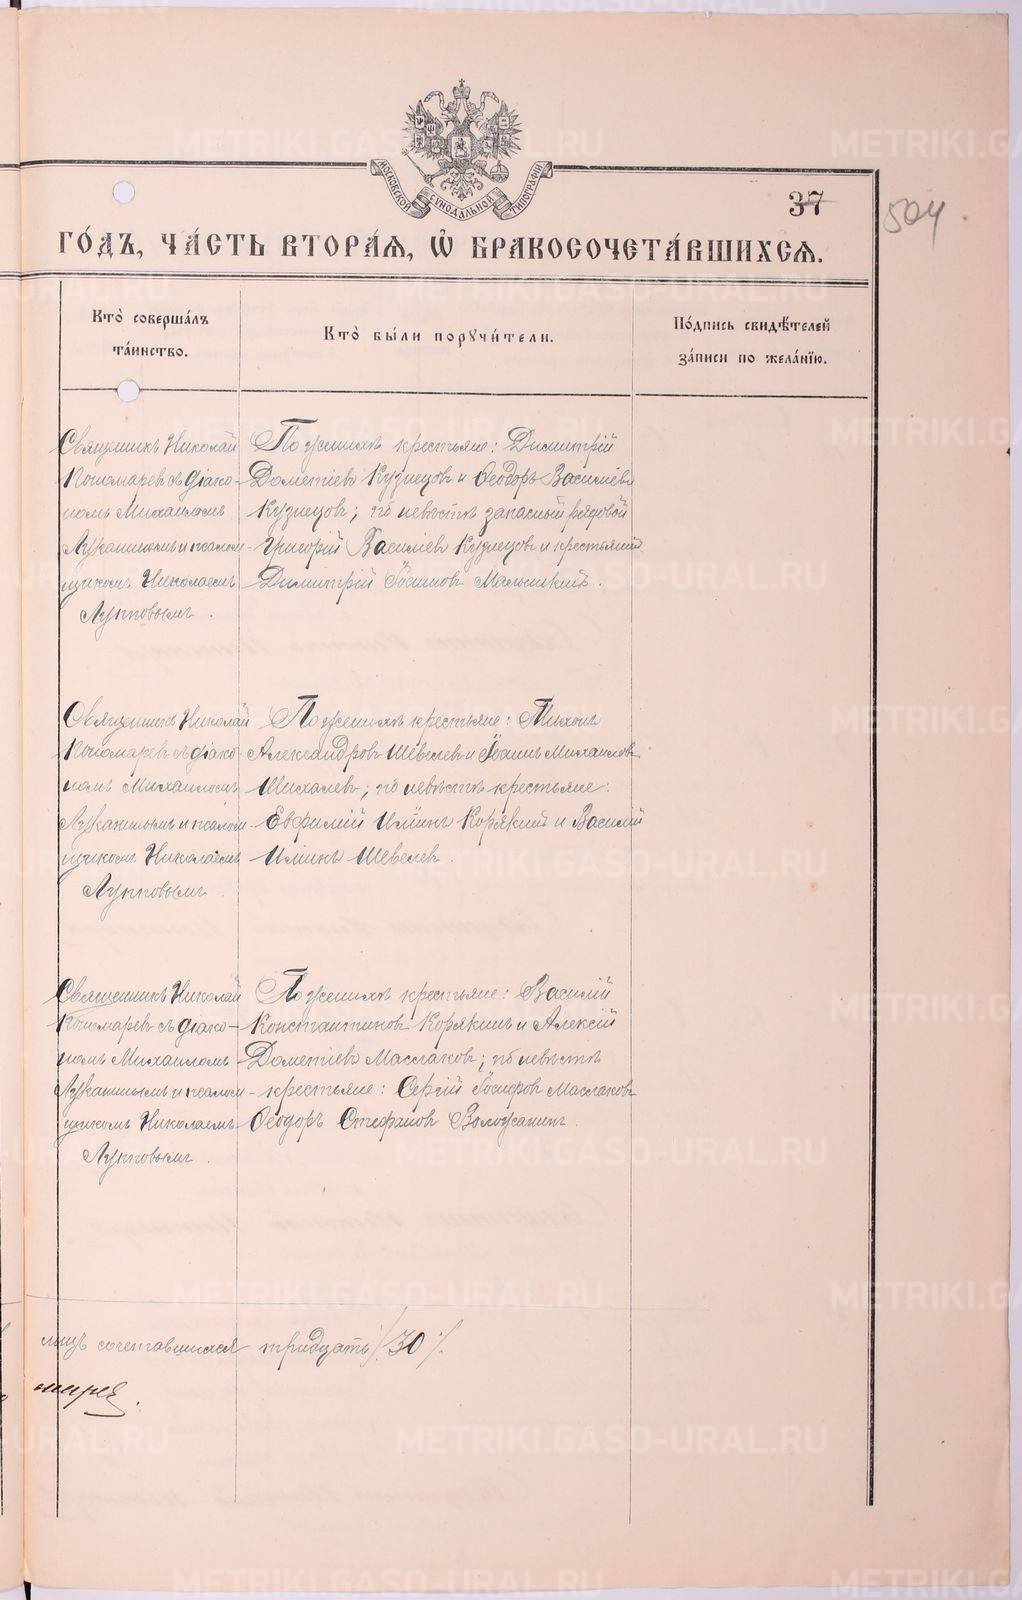 МОСКОВСКОЙ СѴНОДАЛЬНОЙ ТИПОГРАФІИ
37
504
ГО́ДЪ, ЧА́СТЬ ВТОРА́Я, Ѡ҆ БРАКОСОЧЕТА́ВШИХСЯ.
Кто̀ соверша́лъ
та́инство.
Кто̀ бы́ли порꙋчи́тели.
По́дпись свидѣ́телей
за́писи по жела́нїю.
Священникъ Николай
Пономаревъ съ діако-
номъ Михаиломъ
Лукашинымъ и псалом-
щикомъ Николаемъ
Лупповымъ.
По женихѣ крестьяне: Димитрій
Дометіевъ Кузнецовъ и Ѳеодоръ Василіевъ
Кузнецовъ; по невѣстѣ запасный рядовой
Григорій Василіевъ Кузнецовъ и крестьянинъ
Димитрій Іосифовъ
Священникъ Николай
Пономаревъ съ діако-
номъ Михаиломъ
Лукашинымъ и псалом-
щикомъ Николаемъ
Лупповымъ.
По женихѣ крестьяне: Тихонъ
Александровъ Шевелевъ и Іоаннъ Михаиловъ
Шихалевъ; по невѣстѣ крестьяне:
Евфимій Ильинъ Корякинъ и Василій
Ильинъ Шевелевъ.
Священникъ Николай
Пономаревъ съ діако-
номъ Михаиломъ
Лукашинымъ и псалом-
щикомъ Николаемъ
Лупповымъ.
По женихѣ крестьяне: Василій
Константиновъ Корякинъ и Алексій
Дометіевъ Маслаковъ; по невѣстѣ
крестьяне: Сергій Маслаковъ
Ѳеодоръ Стефановъ Воложанинъ.
лицъ сочетавшихся тридцать /30/.
METRIKI.GASO-URAL.RU